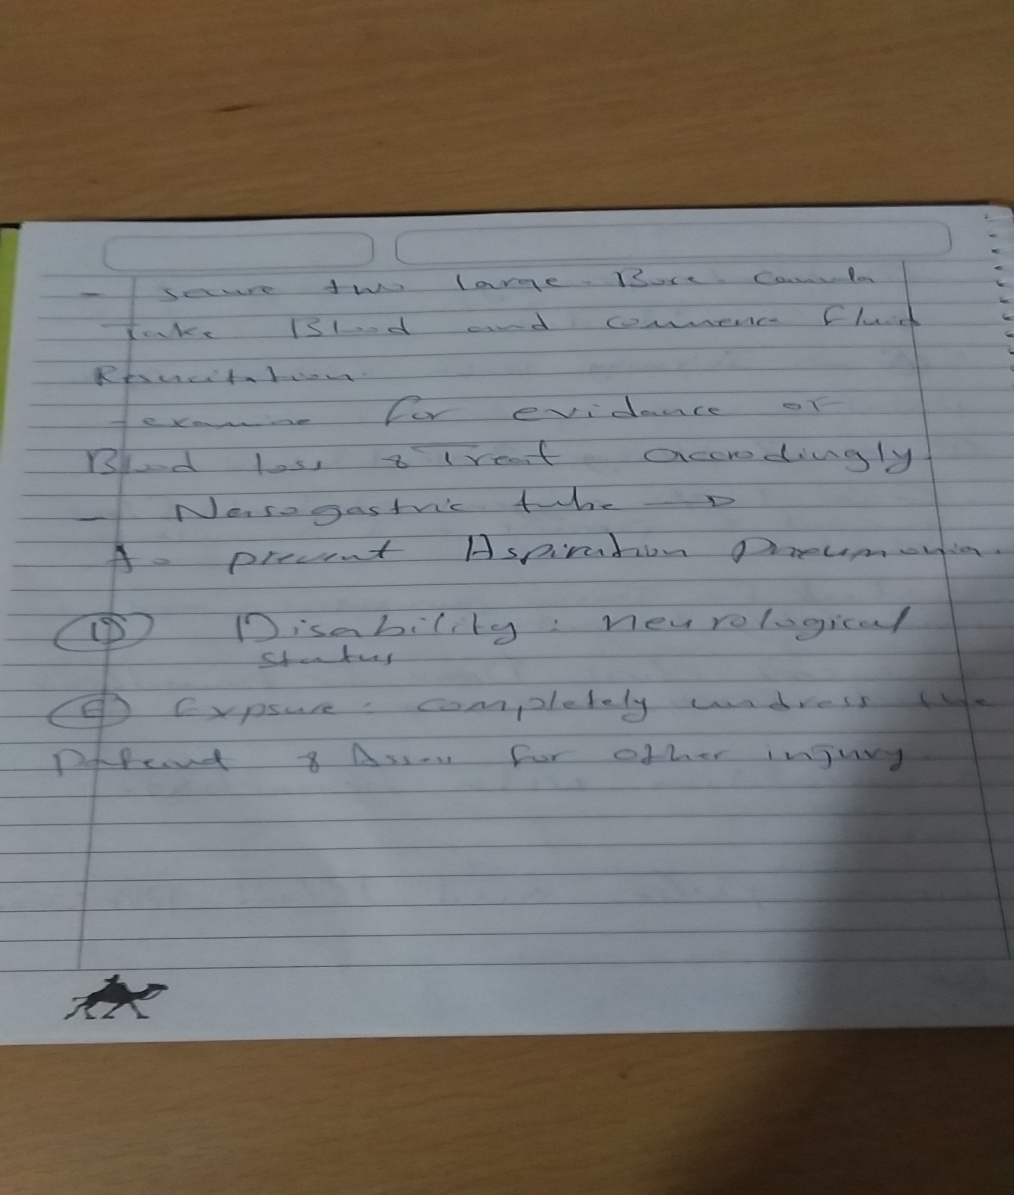 - secure two large Bore Canula
Take Blood and commence fluid
Resucitation
- examine for evidance of
Blood loss & Treat accrodingly
- Nasogastric tube →
to prevent Aspiration Pneumonia.
(D) Disability : neurological
status
(E) Expsure : completely undress the
Patient & Assess for other injury